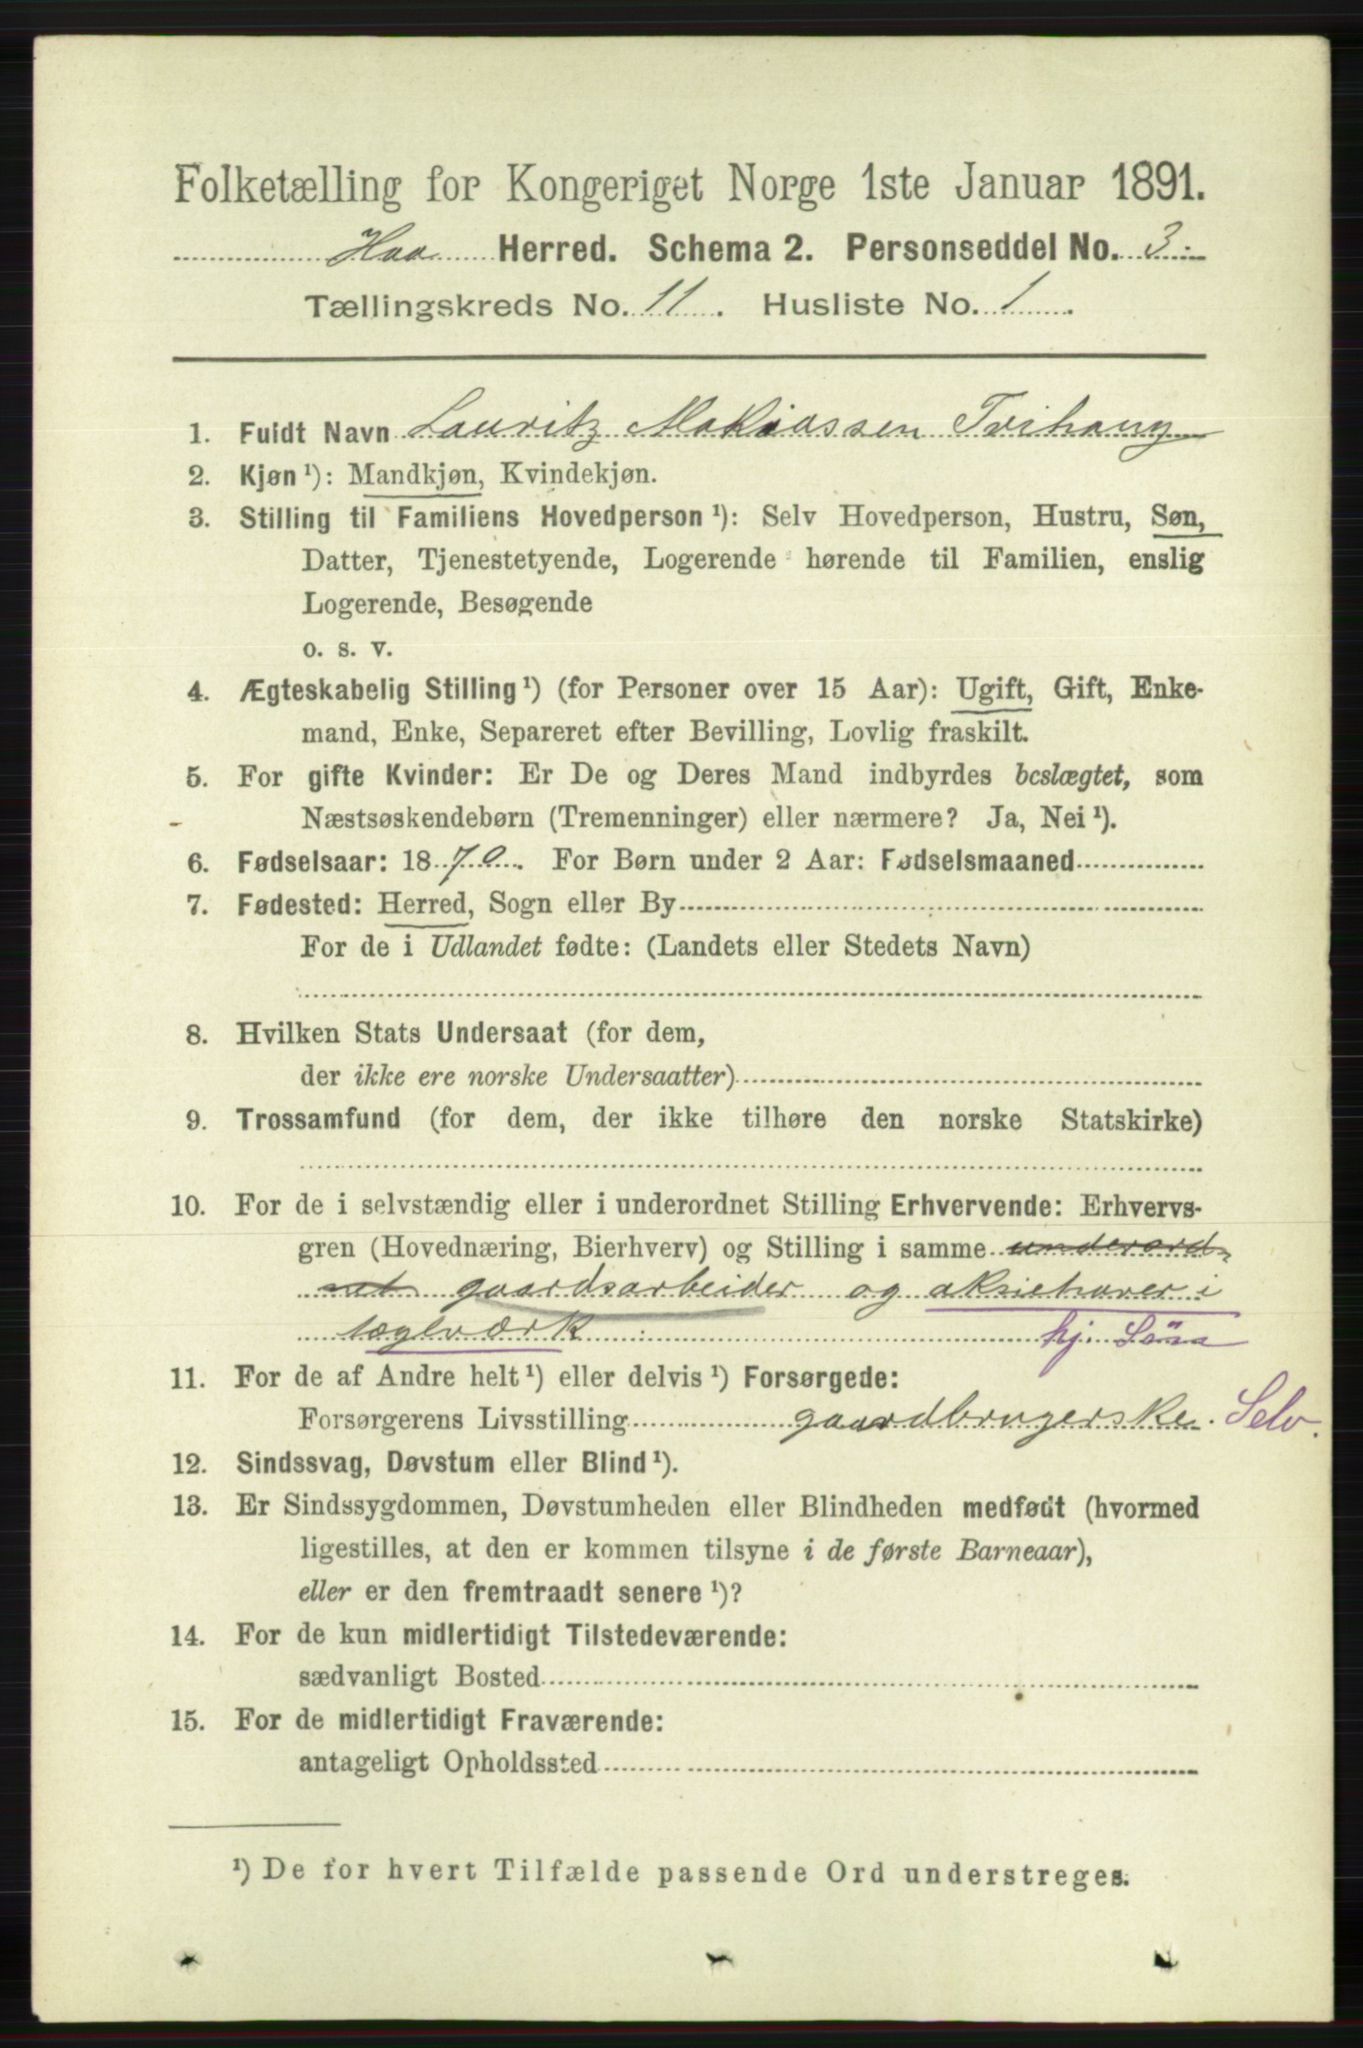 Folketælling for Kongeriget Norge 1ste Januar 1891.
Haa Herred. Schema 2. Personseddel No. 3.
Tællingskreds No. 11. Husliste No. 1.
1. Fuldt Navn Lauritz Makiassen Tvihaug
2. Kjøn ¹): Mandkjøn, Kvindekjøn.
3. Stilling til Familiens Hovedperson ¹): Selv Hovedperson, Hustru, Søn,
Datter, Tjenestetyende, Logerende hørende til Familien, enslig
Logerende, Besøgende
o. s. v.
4. Ægteskabelig Stilling ¹) (for Personer over 15 Aar): Ugift, Gift, Enke-
mand, Enke, Separeret efter Bevilling, Lovlig fraskilt.
5. For gifte Kvinder: Er De og Deres Mand indbyrdes beslægtet, som
Næstsøskendebørn (Tremenninger) eller nærmere? Ja, Nei ¹).
6. Fødselsaar: 1870. For Børn under 2 Aar: Fødselsmaaned
7. Fødested: Herred, Sogn eller By
For de i Udlandet fødte: (Landets eller Stedets Navn)
8. Hvilken Stats Undersaat (for dem,
der ikke ere norske Undersaatter)
9. Trossamfund (for dem, der ikke tilhøre den norske Statskirke)
10. For de i selvstændig eller i underordnet Stilling Erhvervende: Erhvervs-
gren (Hovednæring, Bierhverv) og Stilling i samme underord-
net gaardsarbeider og aksiehaver i
teglværk hj. Søn
11. For de af Andre helt ¹) eller delvis ¹) Forsørgede:
Forsørgerens Livsstilling gaardbrugerske. Selv.
12. Sindssvag, Døvstum eller Blind ¹).
13. Er Sindssygdommen, Døvstumheden eller Blindheden medfødt (hvormed
ligestilles, at den er kommen tilsyne i de første Barneaar),
eller er den fremtraadt senere ¹)?
14. For de kun midlertidigt Tilstedeværende:
sædvanligt Bosted
15. For de midlertidigt Fraværende:
antageligt Opholdssted
¹) De for hvert Tilfælde passende Ord understreges.